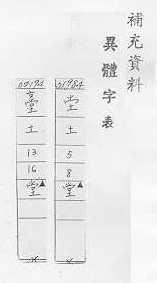 補充資料
異體字表
01984
坣
土
5
8
堂▲
土
13
16
堂▲